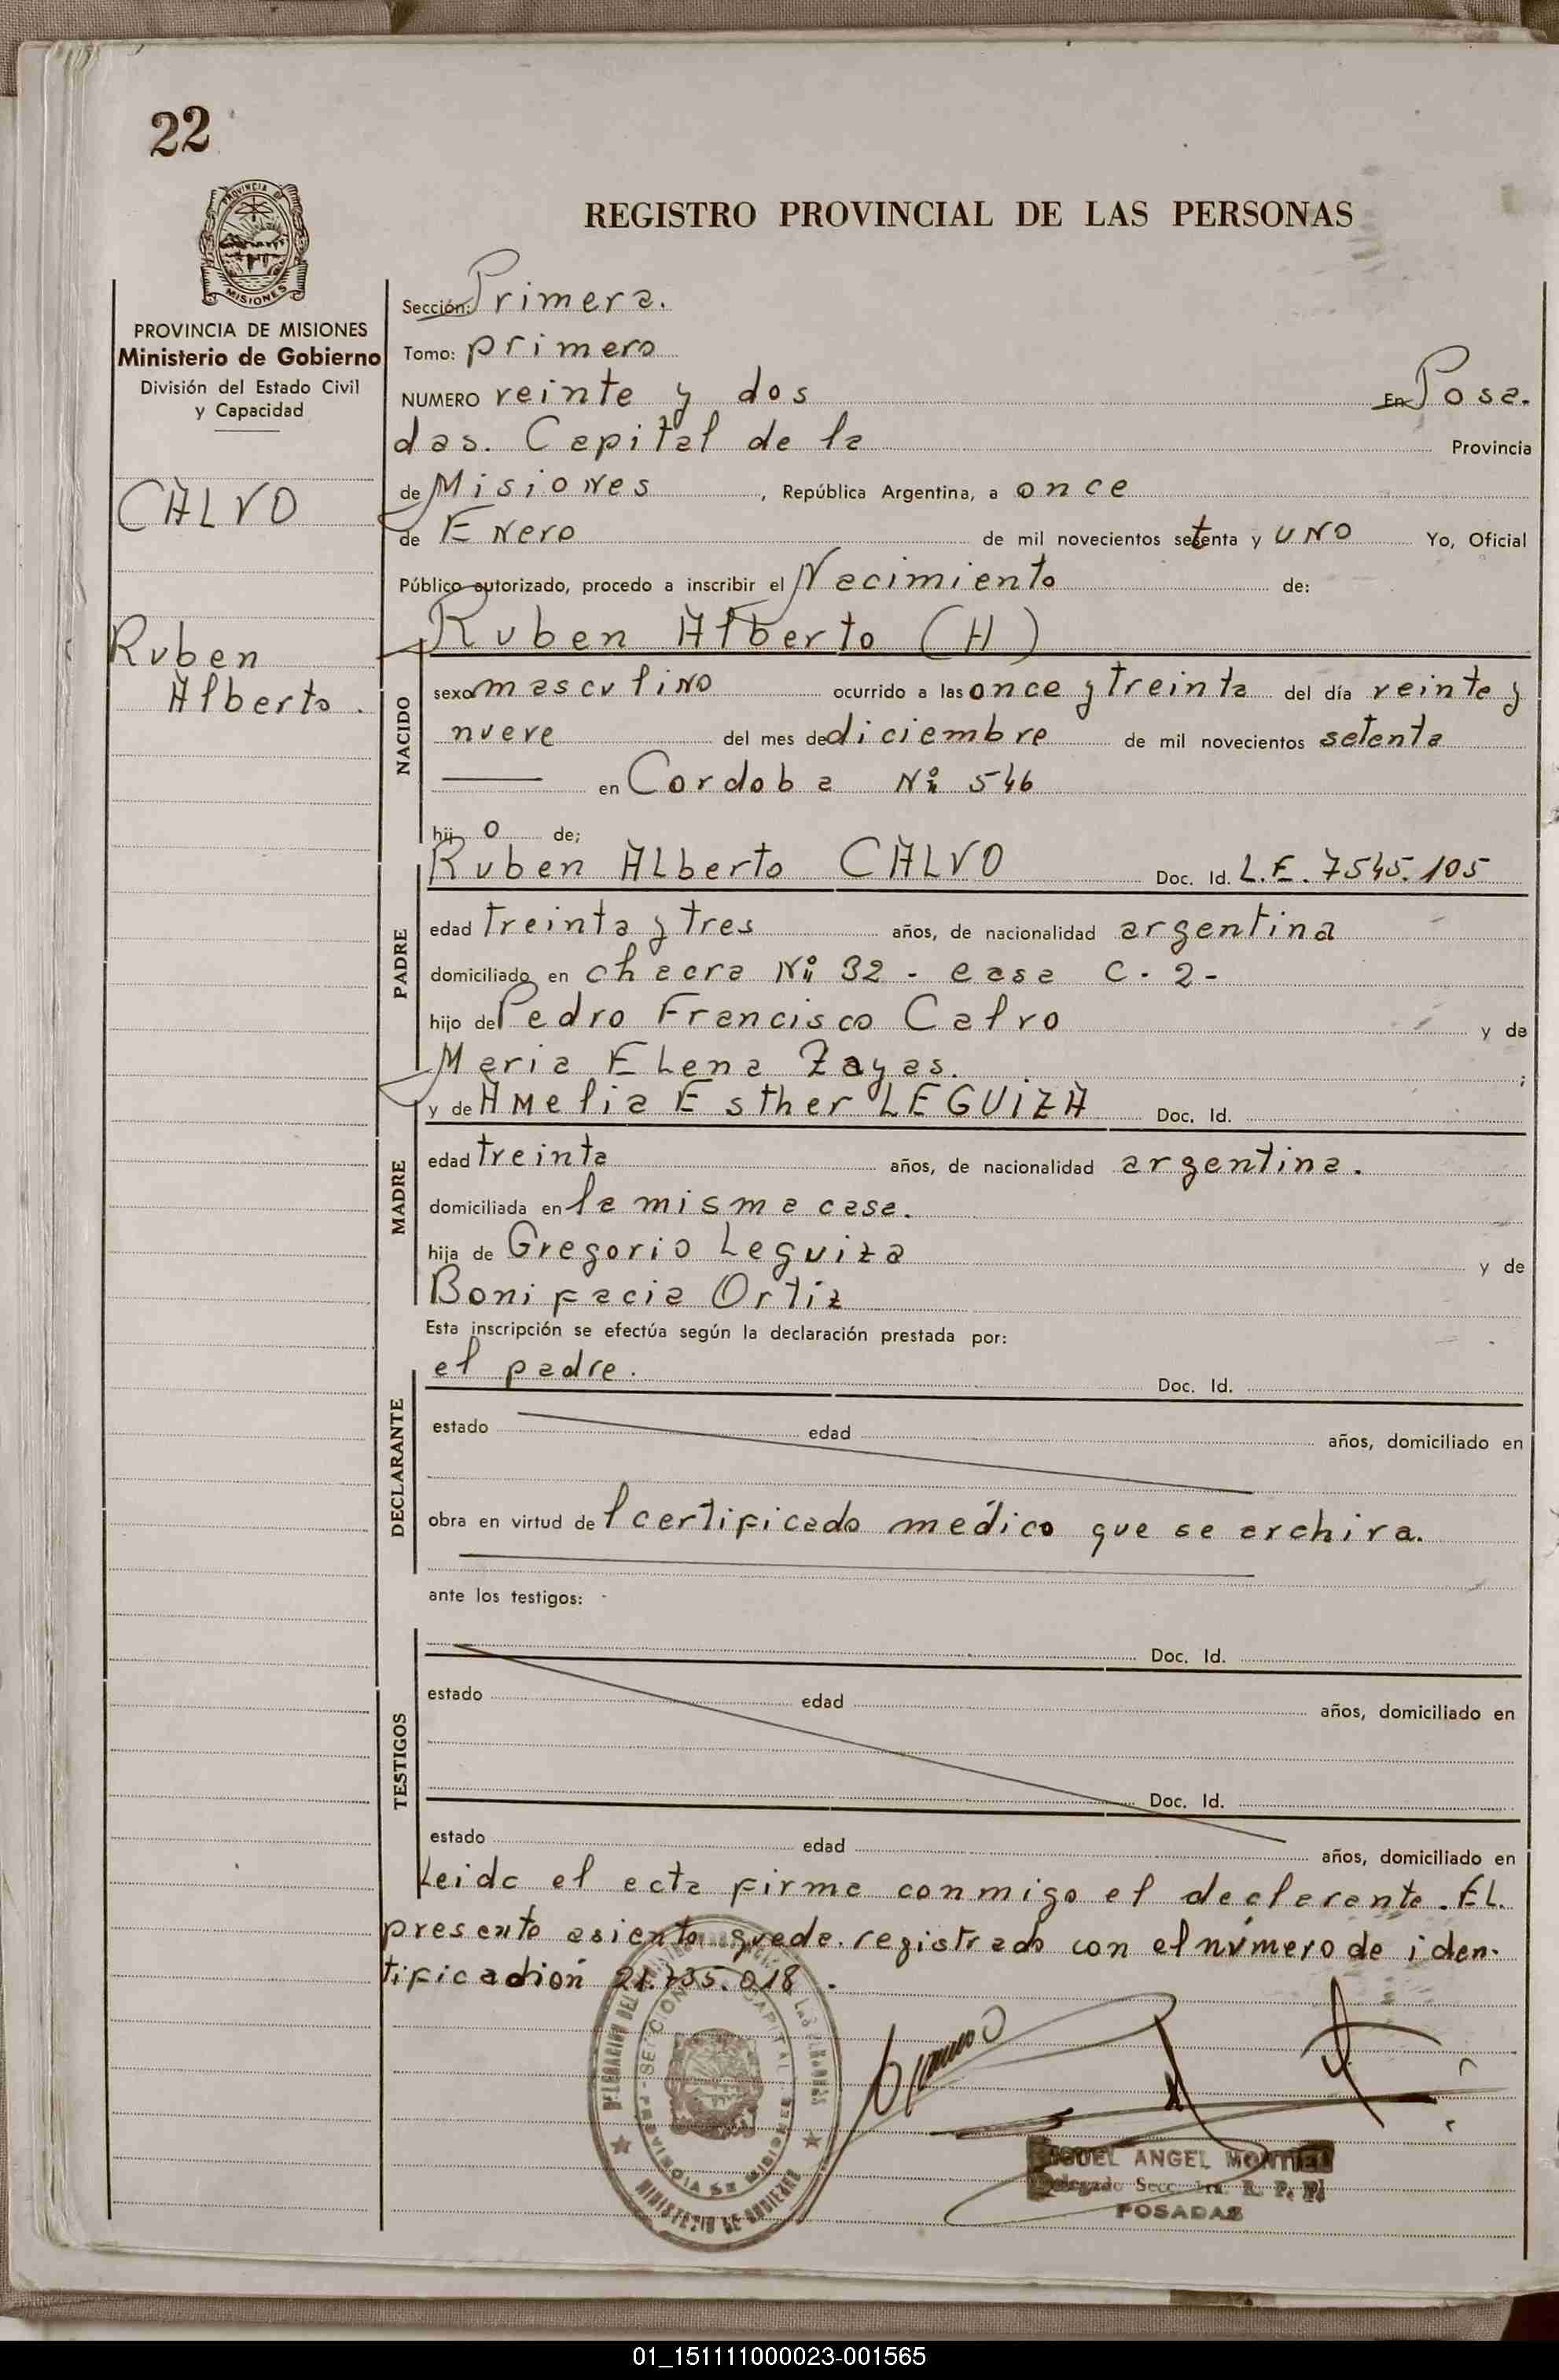 22
PROVINCIA DE
MISIONES
PROVINCIA DE MISIONES
Ministerio de Gobierno
División del Estado Civil
y Capacidad
CALVO
Ruben
Alberto.
REGISTRO PROVINCIAL DE LAS PERSONAS
Sección: Primera.
Tomo: primero
NUMERO veinte y dos En Posa-
das. Capital de la Provincia
de Misiones, República Argentina, a once
de Enero de mil novecientos setenta y uno Yo, Oficial
Público autorizado, procedo a inscribir el Nacimiento de:
Ruben Alberto (H)
NACIDO
sexo masculino ocurrido a las once y treinta del día veinte y
nueve del mes de diciembre de mil novecientos setenta
en Cordoba Nº 546
hij o de;
PADRE
Ruben Alberto CALVO Doc. Id. L.E. 7545.105
edad treinta y tres años, de nacionalidad argentina
domiciliado en chacra Nº 32 - casa C - 2 -
hijo de Pedro Francisco Calvo y de
Maria Elena Zayas. ;
MADRE
y de Amelia Esther LEGUIZA Doc. Id.
edad treinta años, de nacionalidad argentina.
domiciliada en la misma casa.
hija de Gregorio Leguiza y de
Bonifacia Ortiz
Esta inscripción se efectúa según la declaración prestada por:
DECLARANTE
el padre. Doc. Id.
estado edad años, domiciliado en
obra en virtud de l certificado médico que se archiva.
ante los testigos:
TESTIGOS
Doc. Id.
estado edad años, domiciliado en
Doc. Id.
estado edad años, domiciliado en
Leida el acta firma conmigo el declarante. El
presente asiento queda registrado con el número de iden-
tificación 21.735.018.
MINISTERIO DE GOBIERNO
PROVINCIA DE MISIONES
MIGUEL ANGEL MONTIEL
Delegado Secc. 1ra. R. P. P.
POSADAS
01_151111000023-001565